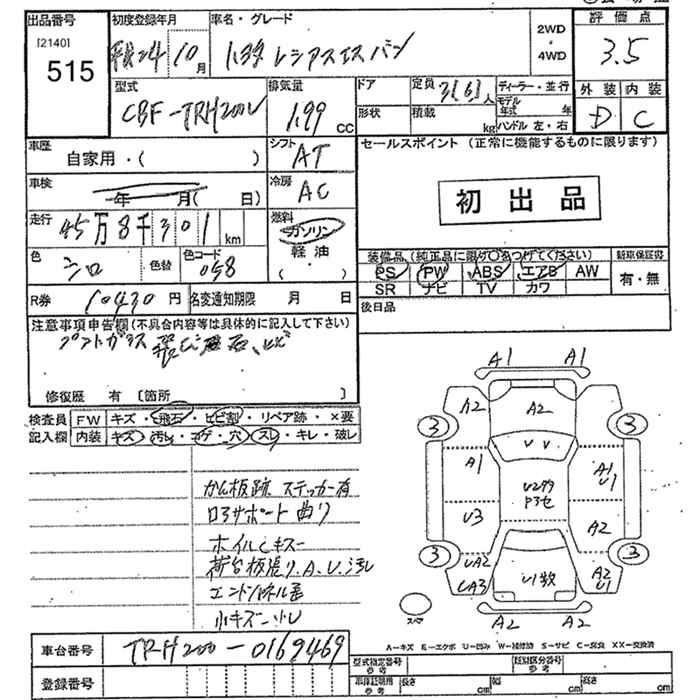 出品番号 初度登録年月 車名・グレード 評価点
[2140] 515
平成24年10月 トヨタ レジアスエースバン 2WD・4WD 3.5
型式 排気量 ドア 定員 3(6)人 ディーラー・並行 外装 内装
CBF-TRH200V 1.99 CC 形状 積載 kg モデル年式 年 ハンドル 左・右 D C
車歴 自家用・( ) シフト AT セールスポイント (正常に機能するものに限ります)
車検 年 月( 日) 冷房 AC 初出品
走行 45万8千301 km 燃料 ガソリン
軽油
色 シロ 色替 色コード 058 装備品(純正品に限り○をつけてください) 新車保証書
PS PW ABS エアB AW 有・無
SR ナビ TV カワ
R券 10430円 名変通知期限 月 日 後日品
注意事項申告欄(不具合内容等は具体的に記入して下さい)
フロントガラス 飛び石、ヒビ
修復歴 有 [箇所 ]
検査員 FW キズ・飛石・ヒビ割・リペア跡・×要
記入欄 内装 キズ・汚レ・コゲ・穴・スレ・キレ・破レ
A1 A1
A2 A2 A2
3 3
A1 A1 U1
U299 P3セ
U3 A2
3 3
UA2 UA3 U1数 A2 U1
A2 A2
スペア
かん板跡 ステッカー有
ロアサポート 曲り
ホイルCキズ
荷台板張り、A、U、汚レ
小キズ
A-キズ E-エクボ U-凹み W-補修跡 S-サビ C-腐食 XX-交換済
車台番号 TRH200-0169469
登録番号
型式指定番号 参考 類別区分番号 参考
車庫証明用 参考 長さ cm 幅 cm 高さ cm